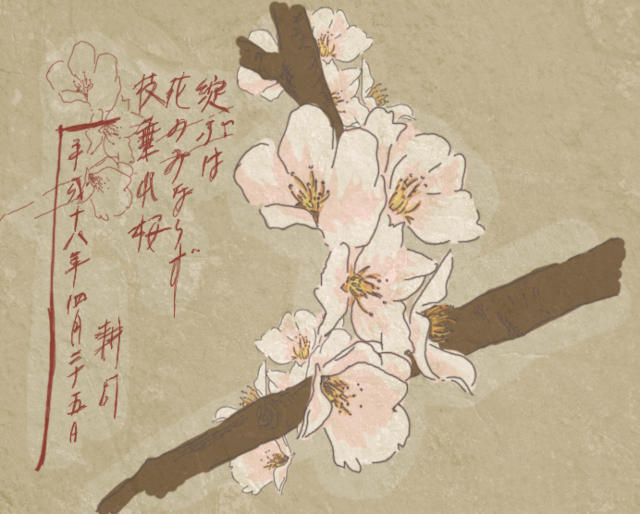 綻ぶは
花のみならず
枝垂れ桜
平成十八年四月二十五日
耕司